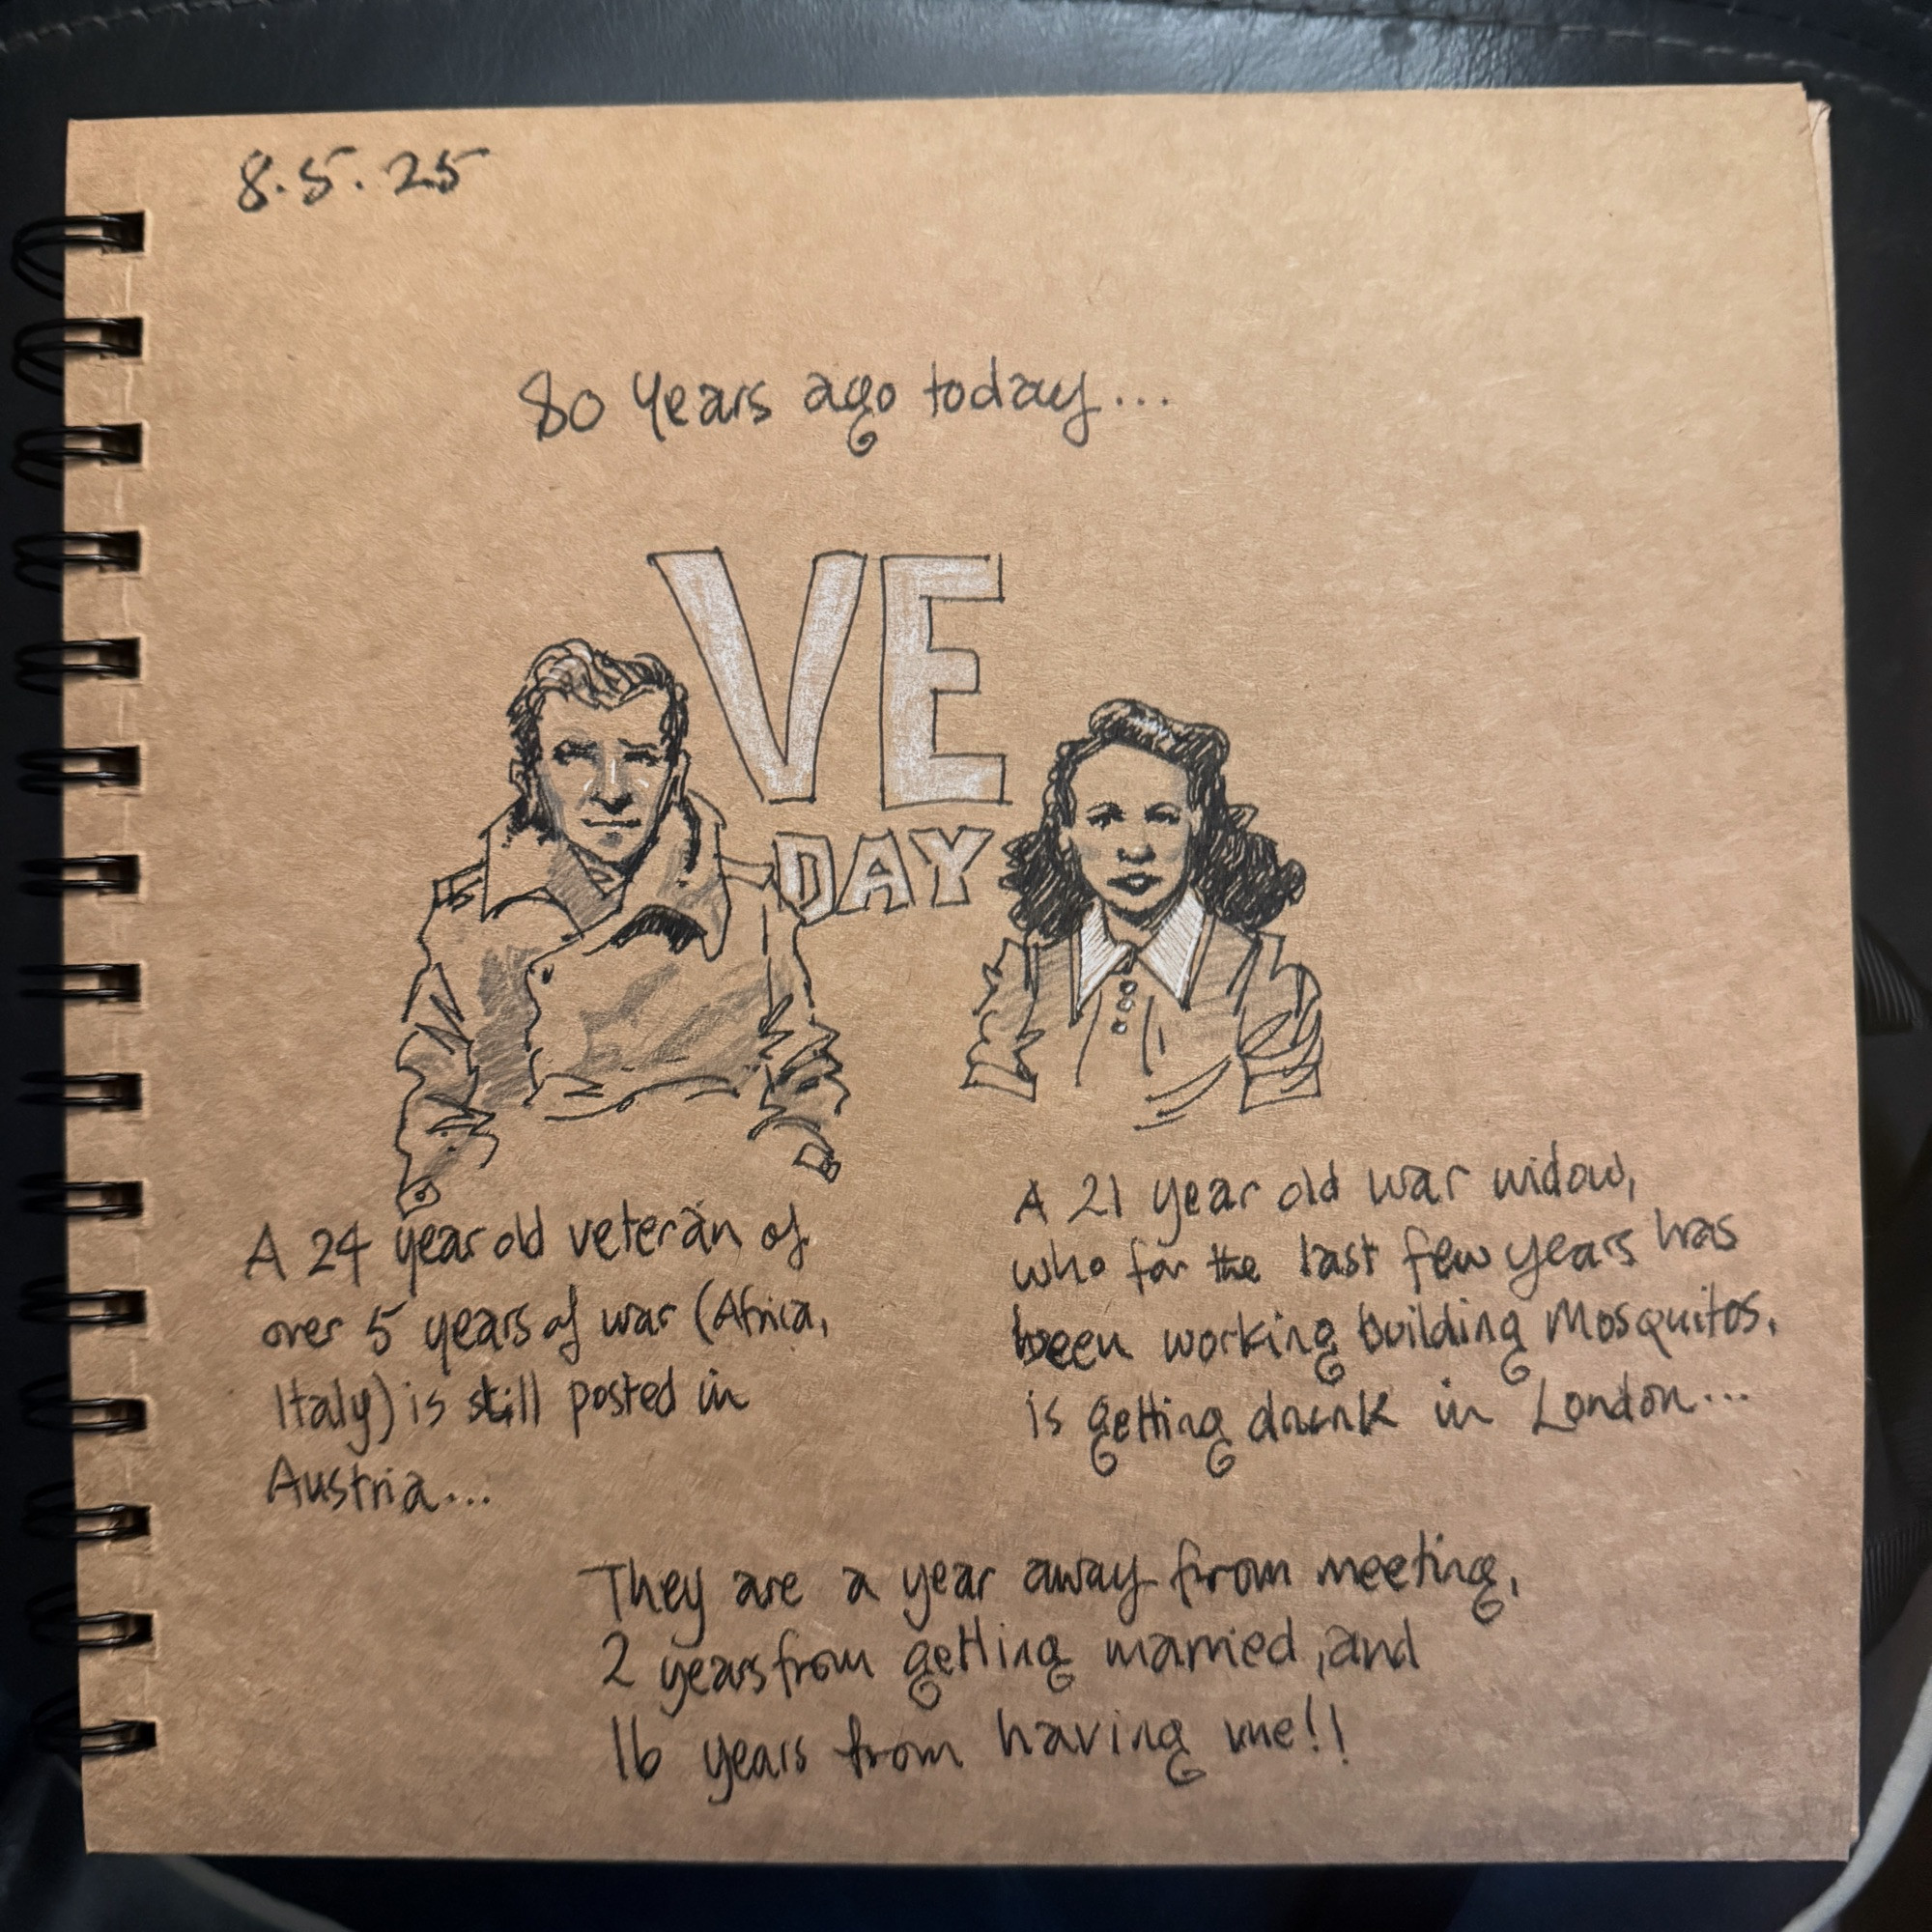 8.5.25
80 years ago today...
VE
DAY
A 24 year old veteran of
over 5 years of war (Africa,
Italy) is still posted in
Austria...
A 21 year old war widow,
who for the last few years has
been working building Mosquitos,
is getting drunk in London...
They are a year away from meeting,
2 years from getting married, and
16 years from having me!!